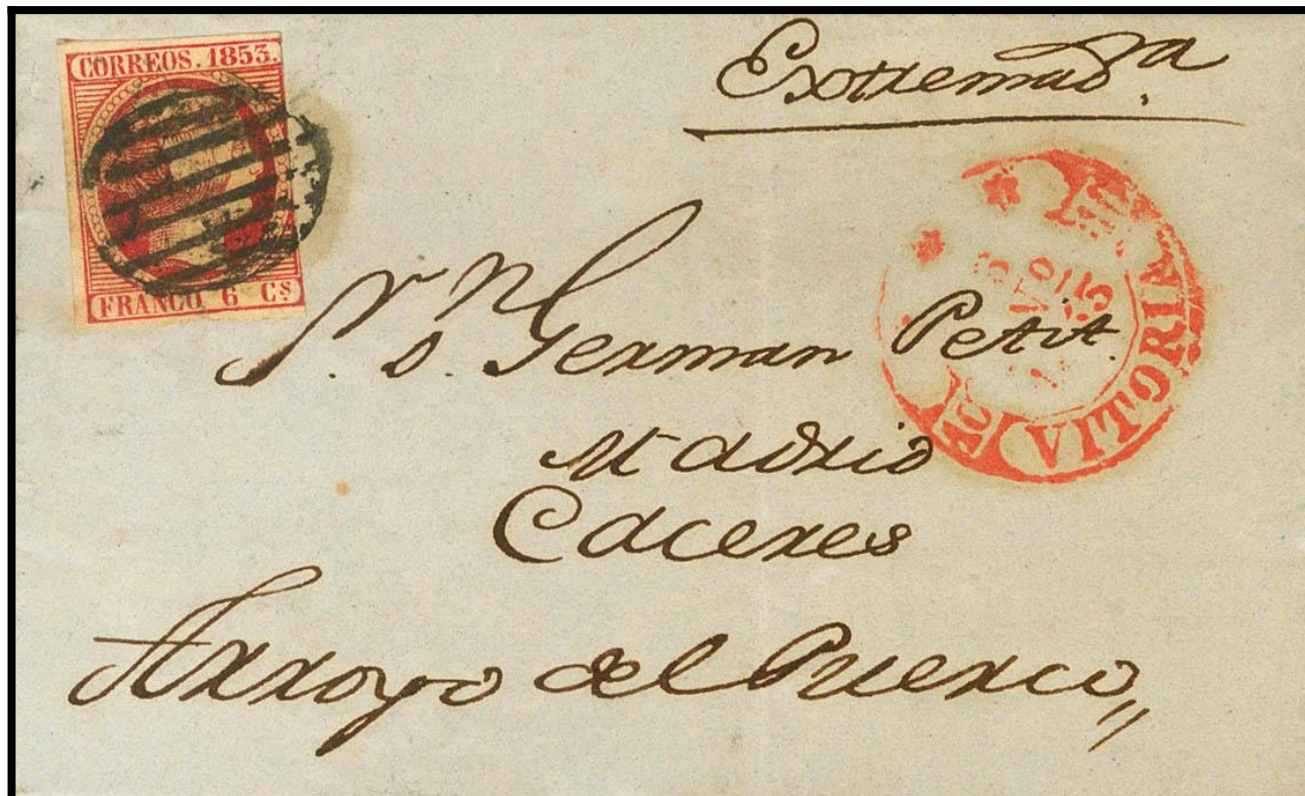 CORREOS. 1853.
FRANCO 6 Cs
Extremada.
Sr. Dn. German Petit.
Madrid
Caceres
Arroyo del Puerco,,
VITORIA